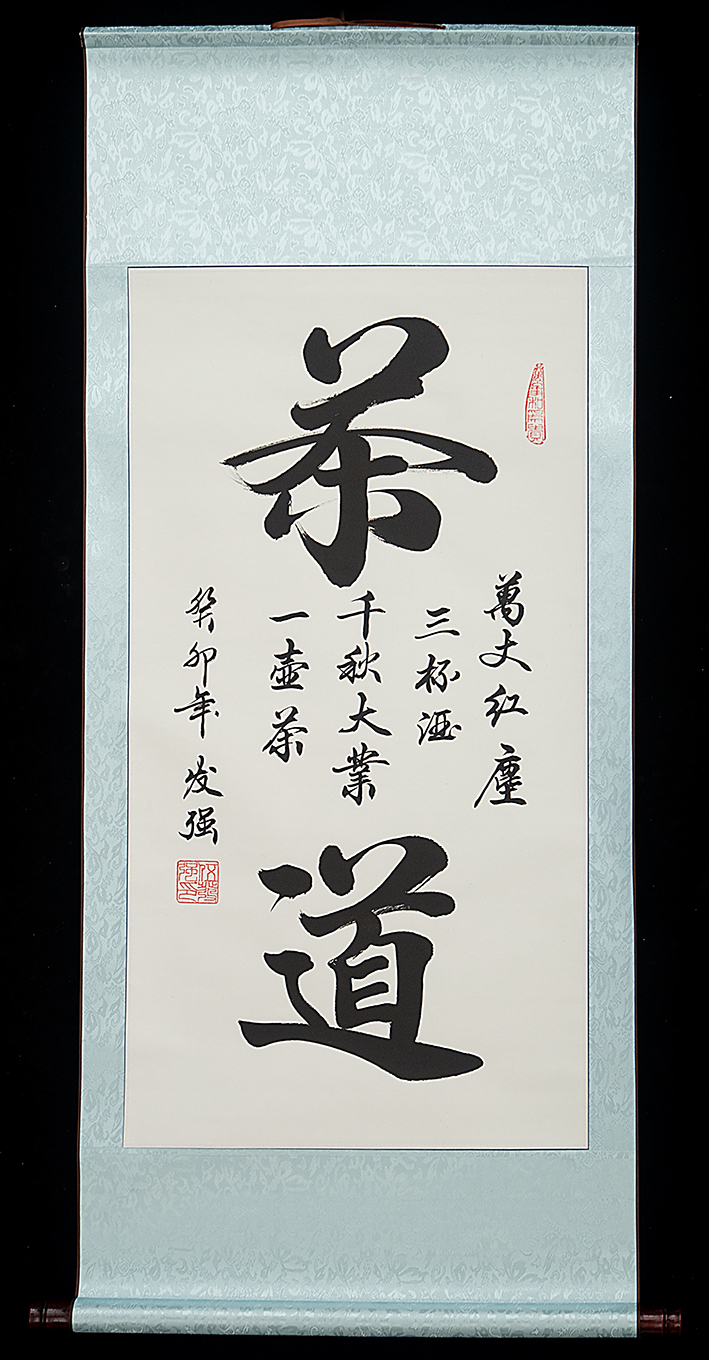 茶道
萬丈红塵
三杯酒
千秋大業
一壶茶
癸卯年 发强